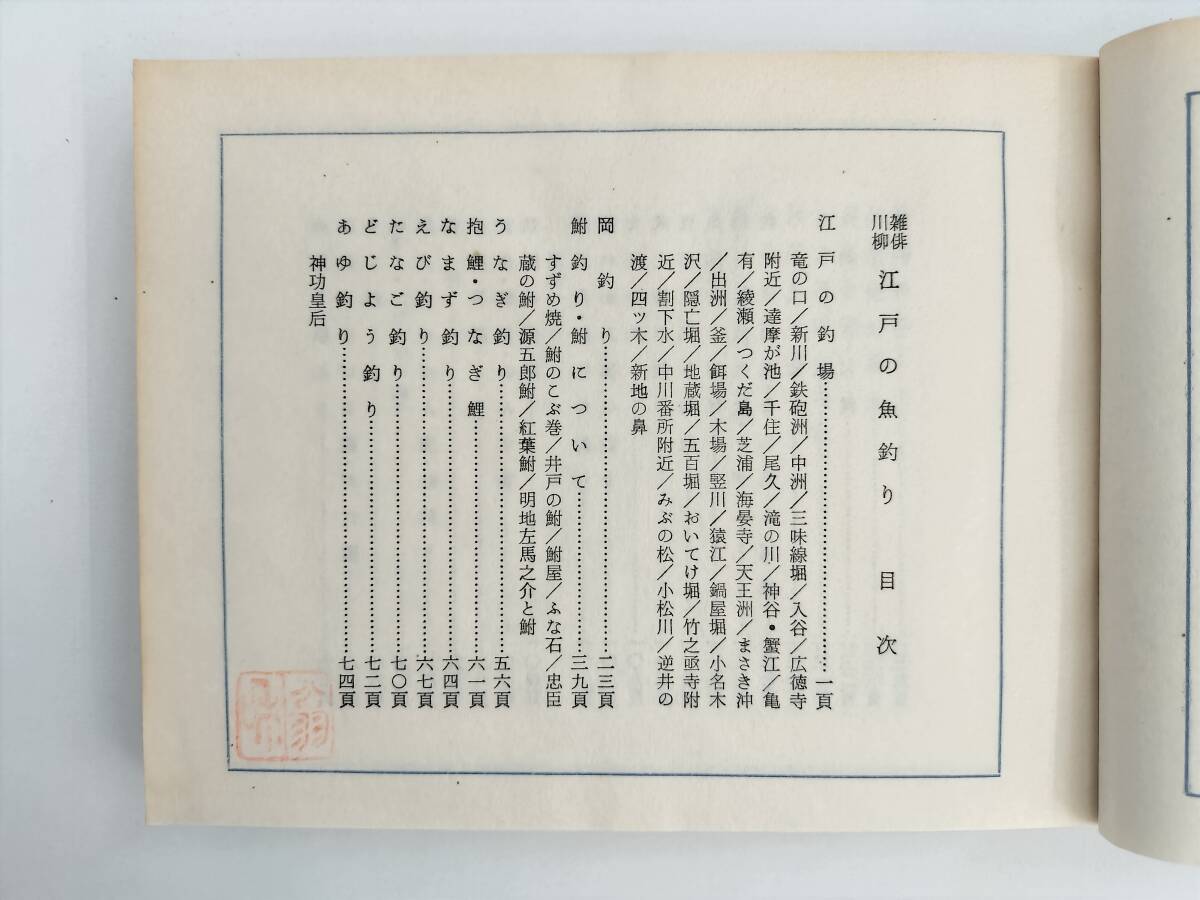 雑俳
川柳 江戸の魚釣り 目次
江戸の釣場…………一頁
竜の口／新川／鉄砲洲／中洲／三味線堀／入谷／広徳寺
附近／達摩が池／千住／尾久／滝の川／神谷・蟹江／亀
有／綾瀬／つくだ島／芝浦／海晏寺／天王洲／まさき沖
／出洲／釜／餌場／木場／竪川／猿江／鍋屋堀／小名木
沢／隠亡堀／地蔵堀／五百堀／おいてけ堀／竹之亟寺附
近／割下水／中川番所附近／みぶの松／小松川／逆井の
渡／四ッ木／新地の鼻
岡釣り…………二三頁
鮒釣り・鮒について…………三九頁
すずめ焼／鮒のこぶ巻／井戸の鮒／鮒屋／ふな石／忠臣
蔵の鮒／源五郎鮒／紅葉鮒／明地左馬之介と鮒
うなぎ釣り…………五六頁
抱鯉・つなぎ鯉…………六一頁
なまず釣り…………六四頁
えび釣り…………六七頁
たなご釣り…………七〇頁
どじよう釣り…………七二頁
あゆ釣り…………七四頁
神功皇后